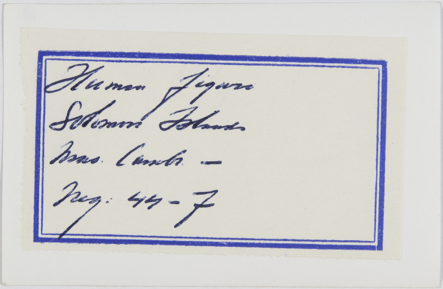 Human Figure
Solomon Islands
Mus. Camb. –
Neg. 44-7